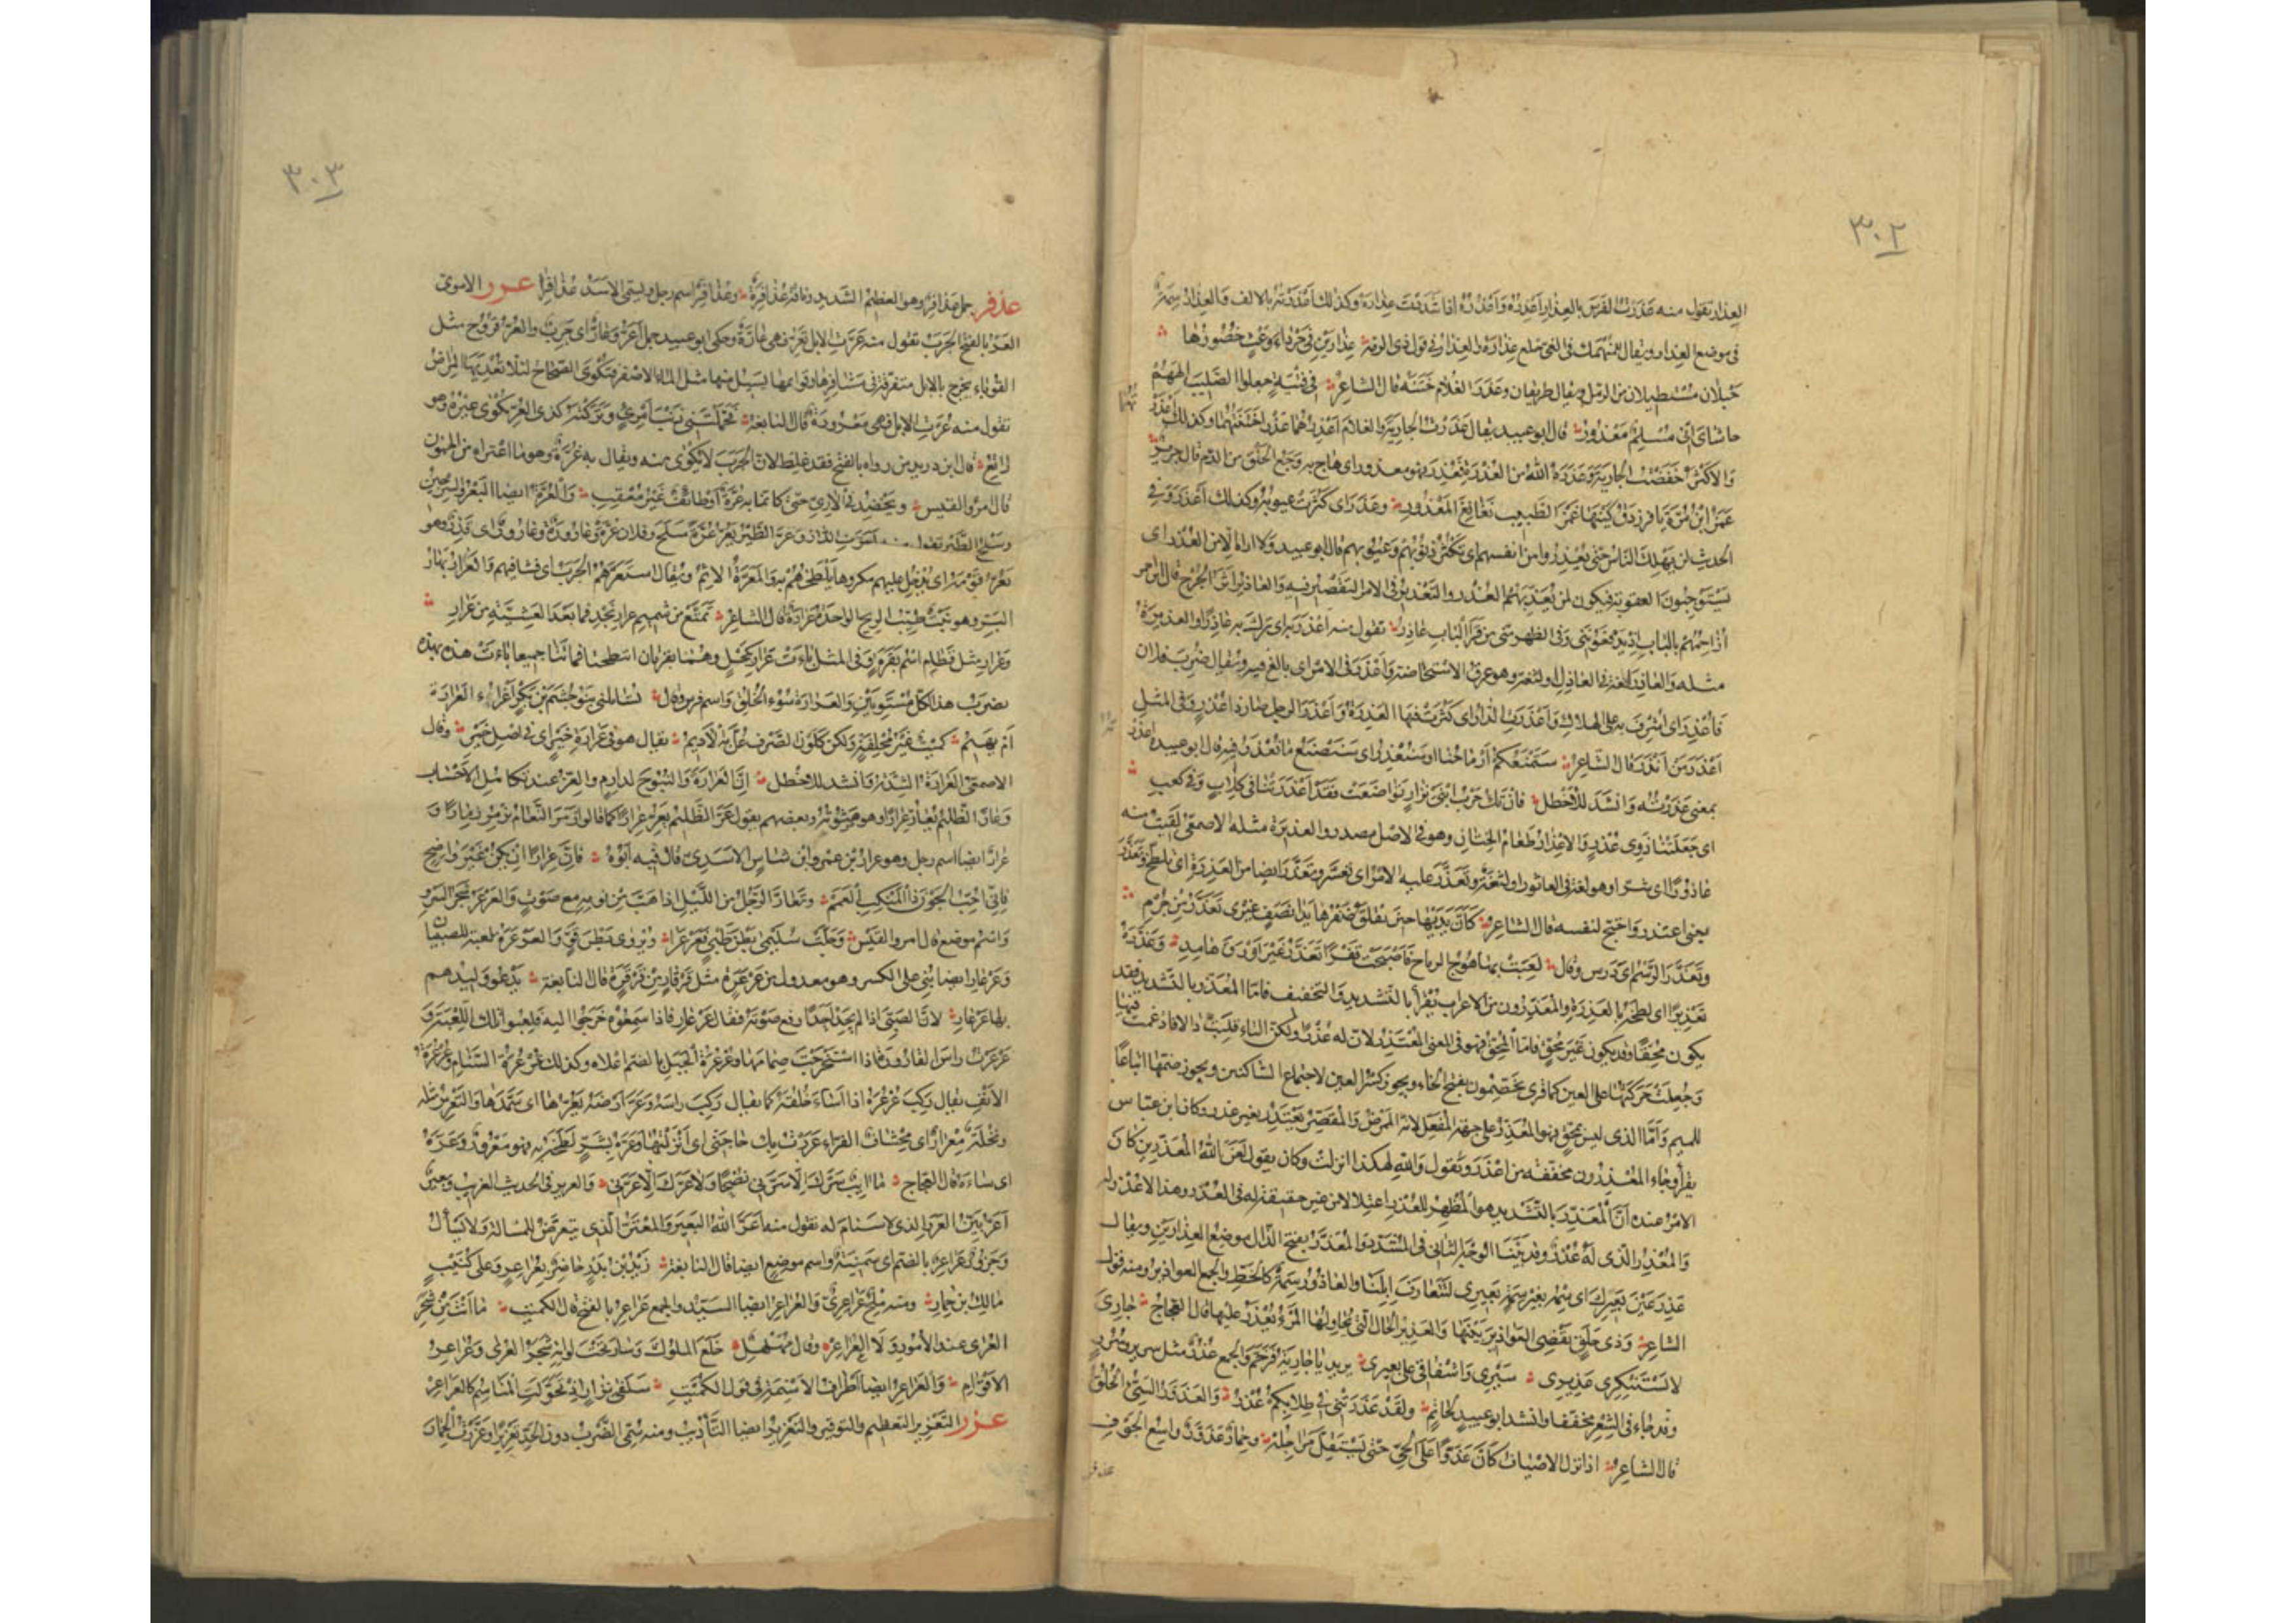 ٣٠٢
العذار تقول منه عَذَرتُ الفرَس بالعِذَار اَعْذِرُه وَاَعْذُرُه اذا شَدَدْتَ عِذارَهُ وكذلك اَعْذَرْتُه بالالف وَالعِذارُ سِمَةٌ
فى موضع العِذار ويقال للمُنْهَمِك فى الغىّ خلع عِذارَهُ والعِذارُ فى قول ذى الرمّة عِذارَيْنِ فى جَرْداءَ وَعْثٍ خُصُورُها
حَبْلان مُسْتطيلان من الرّمل ويقال طريقان وعَذَرَ الغلامَ خَتَنَهُ قال الشاعر فى فِتْيَةٍ جعلوا الصّليب الٰهَهُمْ
حاشاىَ اِنّى مُسْلِمٌ مَعْذورُ قال ابو عبيد يقال عَذَرْتُ الجارية والغلامَ اَعْذِرُهُما عَذْرًا خَتَنْتُهما وكذلك اَعْذَرْ
وَالاكثرُ خَفَضْتُ الجاريةَ وَعَذَرَهُ اللهُ من العُذْرَةِ فعُذِرَ فهو معذور اى هاج به وَجَعُ الحَلْق من الدّم قال جريرٌ
غَمَزَ ابْنُ مُرَّةَ يا فرزدقُ كَيْنَها غَمْزَ الطَّبيبِ نَغانِغَ المَعْذُورِ وعَذَرَ اى كَثُرَتْ عيوبُه وكذلك اَعْذَرَ وَفى
الحديث لن يَهْلِكَ النّاسُ حَتّى يُعْذِرُوا من انفسهم اى تكثُرُ ذنوبُهم وَعيوبُهم قال ابو عبيد وَلا اراهُ الّا من العُذْر اى
يَسْتوجبون العقوبة فيكون لمن يُعَذِّبُهُمُ العُذْر والتّعذيرُ فى الامر التّقصيرُ فيه وَالعاذِرُ اَثَرُ الجُرْح قال ابن احمر
اُزاحِمُهُمْ بالبابِ اِذْ يَدْفَعُونَنى وَفى الظهر منّى من قَرا البابِ عاذِرُ تقول منه اَعْذَرَ به اى تركَ به عاذِرًا والعذيرةُ
مثله وَالعاذِرُ لُغَةٌ فى العاذِل او لُثْغَةٌ وهو عِرْق الاستحاضة وَاَعْذَرَ فى الامر اى بالغ فيه ويُقال ضُرِبَ فلان
فَاُعْذِرَ اى اُشْرِفَ به على الهلاك وَاَعْذَرَتِ الدّارُ اى كَثُرَتْ فيها العَذِرَةُ وَاَعْذَرَ الرجل صار ذا عُذْرٍ وَفى المثل
اَعْذَرَ مَنْ اَنْذَرَ قال الشاعر سَتَمْنَعُكُمْ اَرْماحُنا او سَنُعْذِرُ اى سَنَصْنَعُ ما نُعْذَرُ فيه قال ابو عبيدة اعذر
بمعنى عَذَرْتُه وَانشد للاخطل فان تَكُ حَرْبُ ابْنَىْ نِزارٍ تَواضَعَتْ فَقَدْ اَعْذَرَتْنا فى كلابٍ وَفى كَعْبِ
اى جَعَلَتْنا ذَوى عُذْرٍ وَالاِعْذارُ طعامُ الخِتانِ وهو فى الاصل مصدر والعذيرةُ مثله الاصمعى لقيتُ منه
عاذورًا اى شرّا وهو لغة فى العاثور او لثغة وتعذّر عليه الامرُ اى تعسّر وتعذّر ايضا من العَذِرَة اى تلطّخ وتعذّر
يعنى اعتذر وَاحتجّ لنفسه قال الشاعر كَاَنَّ يَدَيْها حينَ يقلق ضَفْرُها يَدا نَصَفٍ غَيْرَى تَعَذَّرُ مِنْ جُرْمِ
وتَعَذَّرَ الرّسْم اى دَرَس وقال لَعِبَتْ بها هُوجُ الرياح فاَصْبَحَتْ قَفْرًا تَعَذَّرُ غَيْرَ اَوْرَقَ هامِدِ وَعَذَّرَهُ
تَعْذيرًا اى لطّخه بالعَذِرَة والمُعَذِّرون من الاعراب يُقْرَأ بالتّشديد وَالتخفيف فامّا المُعَذِّر بالتّشديد فقد
يكون مُحِقّا وقد يكون غَيْرَ مُحِقٍّ فامّا المُحِقُّ فهو فى المعنى المُعْتَذِر لانّ له عُذْرًا ولكنّ التاء قُلِبَتْ ذالا فادغمت فيها
وَجُعِلَتْ حَرَكَتُها على العين كما قرئ يَخَصِّمُون بفتح الخاء ويجوز كسْرُ العين لاجتماع السّاكنين ويجوز ضمّها اتباعًا
للميم وَاَمّا الذى ليس بمحقّ فهو المُعَذِّرُ على جهة المُفَعِّل لانّه المُمَرِّض وَالمُقَصِّر يَعْتَذِر بغير عذر وكان ابن عبّاس
يقرأ وَجاء المُعْذِرُون مخففة من اَعْذَرَ وَيقول وَاللهِ لهكذا انزلت وكان يقول لعَنَ اللهُ المُعَذِّرين كان
الامرُ عنده اَنَّ المُعَذِّرَ بالتّشديد هو المُظْهِر للعُذْر اعتلالا من غير حقيقة له فى العُذر وهذا لا عُذْر له
وَالمُعْذِر الّذى لَهُ عُذْرٌ وقد بَيَّنّا الوجْهَ الثّانى فى المُشَدَّد وَالمُعَذَّرُ بفتح الذّال موضعُ العِذارَيْنِ ويقال
عَذِّرْ عَيْنَ بَعيرِك اى سِمْهُ بغير سِمَةِ بَعيرى لتتعارف اِبِلُنا والعاذورُ سِمَةٌ كالخطّ والجمع العواذير ومنه قول
الشاعر وَذى حَلَقٍ تَقْضِى العَواذيرُ بَيْنَها وَالعَذيرُ الحالُ الّتى يُحاوِلُها المَرْءُ يُعْذَرُ عليها قال العجّاج جارِىَ
لا تَسْتَنْكِرى عَذيرى سَيْرى وَاِشْفاقى على بَعيرى يريد يا جارِيَةُ فَرَخَّمَ والجمع عُذُرٌ مثل سرير وسُرُرٍ
وقد جاء فى الشِّعر مخففا وانشد ابو عبيد لحاتمٍ ولقد عَذَرَتْنى فى طِلابِكُمُ عُذْرُ وَالعَذَوَّرُ السيّئ الخُلُق
قال الشاعر اذا نزل الاضياف كَانَ عَذَوَّرًا عَلى الحَىِّ حَتّى تَسْتَقِلَّ مَراجِلُهْ وحمارٌ عَذَوَّرٌ واسع الجَوْف
عذفر
٣٠٣
عذفر جمل عُذافِرٌ وهو العظيمُ الشديد وناقة عُذافِرَةٌ وعُذافِرٌ اسم رجل ويسمّى الاسَدُ عُذافِرًا عرر الاموىّ
العَرّ بالفتح الجَرَبُ تقول منه عَرَّتِ الابل تَعِرُّ فهى عارّةٌ وحكى ابو عبيد جمل اَعَرُّ وعارٌّ اى جَرِبٌ والعُرّ قروح مثل
القُوَباء يخرج بالابل متفرّقة فى مَشافِرها وقوائمها يَسيل منها مثل الماء الاصفر فتُكْوَى الصّحاح لئلّا تُعْدِيَها المِراضُ
تقول منه عُرَّتِ الابل فهى مَعْرُورَةٌ قال النابغة فَحَمَّلْتَنى ذَنْبَ امْرِئٍ وَتَرَكْتَهُ كَذِى العُرِّ يُكْوَى غيْرُهُ وهو
راتِعُ قال ابن دريد من رواه بالفتح فقد غلط لانّ الجَرَبَ لا يُكْوَى منه ويقال به عُرَّةٌ وهو ما اعتراه من الجنون
قال امرؤ القيس ويَخْضِدُ فى الآرِىِّ حتى كانما به عُرَّةٌ اَوْ طائفٌ غَيْرُ مُعْقِبِ وَالعُرّةُ ايضا البَعْر والسّرجين
وسلح الطّير تقول اَعَرَّتِ الدّارُ وعَرَّ الطَّيْرُ يَعُرُّ عَرّةً سَلَحَ وفلان عُرّةٌ وعارُورٌ وعارُورَةٌ اى قَذِرٌ وهو
يَعُرُّ قَوْمَهُ اى يُدْخِلُ عليهم مكروها يُلَطِّخُهُمْ به وَالمَعَرّةُ الاِثمُ ويقال استَعَرَّهُمُ الجَرَبُ اى فشا فيهم وَالعَرارُ بَهارُ
البَرّ وهو نبتٌ طيّبُ الريح الواحدة عَرارَةٌ قال الشاعر تَمَتَّعْ من شَميمِ عَرارِ نَجْدٍ فما بعد العَشِيّةِ مِنْ عَرارِ
وَعَرارِ مثل قَطامِ اسْمُ بَقَرةٍ وَفى المثل باءَتْ عَرارِ بكَحْلَ وهُما بقرتان انتطحتا فماتتا جميعا باءت هذه بهذه
يضرب هذا لكلّ مُسْتَوِيَيْنِ وَالعَرارَةُ سُوْءُ الخُلُق وَاسم فرس وقال تسائلنى بَنُو جُشَمَ بْنِ بَكْرٍ اَغَرّاءُ العَرارَةُ
اَمْ بَهيمُ كُمَيْتٌ غَيْرُ مُحْلِفَةٍ ولكن كَلَوْنِ الصِّرْفِ عُلَّ بِهِ الاَديمُ يقال هو فى عَرارَةِ خَيْرٍ اى فى اصْل خَيْرٍ وقال
الاصمعى العَرارَةُ الشِّدّةُ وانشد للاخطل اِنَّ العَرارَةَ وَالنُّبُوحَ لدارِمٍ والعِزُّ عند تكامُلِ الاَحْسابِ
وَعارَّ الظَّليمُ يُعارُّ عِرارًا وهو صَوْتُهُ وبعضهم يقول عَرَّ الظّليمُ يَعِرُّ عِرارًا كما قالوا زَمَرَ النَّعامُ يَزْمِرُ زِمارًا وَ
عَرارٌ ايضا اسم رجل وهو عرار بْن عمرو ابن شاسٍ الاسَدِىّ قال فيه اَبُوهُ فانَّ عِرارًا ان يكنْ غَيْرَ واضِحٍ
فانّى اُحِبُّ الجَوْنَ ذا المَنْكِبِ العَمَمْ وَتَعارَّ الرّجُلُ من اللّيل اذا هَبَّ مِنْ نومه مع صَوْتٍ وَالعَرْعَرُ شجرُ السَّرْوِ
وَاسْم موضع قال امرؤ القيس وَحَلَّتْ سُلَيْمَى بَطْنَ ظَبْىٍ فَعَرْعَرا وَيُرْوَى بَطْنَ قَوٍّ وَالعَرْعَرَةُ لعبة للصبيان
وَعَرْعارِ ايضا بُنِىَ على الكسر وهو معدول من عَرْعَرَةٍ مثل قَرْقارِ مِنْ قَرْقَرَةٍ قال النابغة يَدْعُو وَليدُهُمْ
بها عَرْعارِ لانّ الصّبىّ اذا لم يَجِدْ اَحَدًا رفع صَوْتَهُ فقال عَرْعارِ فاذا سَمِعُوهُ خَرَجُوا اليه فلعبوا تلك اللُّعْبَةَ وَ
عَرْعَرْتُ راْسَ القارورة اذا اسْتَخْرَجْتَ صِمامَها وعُرْعُرَةُ الجَبَل بالضّم اعلاه وكذلك عُرْعُرَةُ السَّنامِ وعُرْعُرَةُ
الاَنْفِ يقال رَكِبَ عُرْعُرَهُ اذا اَساءَ خُلُقَهُ كما يقال ركِبَ راسَهُ وعَرَّ ارضَهُ يَعُرُّها اى سَمَّدَها والتّعرير مثله
ونخلةٌ مِعْرارٌ اى مِحْشافٌ الفرّاء عَرَرْتُ بك حاجتى اى اَنْزَلْتُها وَعَرَّهُ بشَرٍّ لطّخَهُ به فهو مَعْرُورٌ وَعَرَّهُ
اى ساءَهُ قال العجّاج ما آيبٌ سَرَّكَ اِلّا سَرَّنى نُصْحًا وَلا عَرَّكَ اِلّا عَرَّنى وَالعرير فى الحديث الغريب وَجملٌ
اَعَرُّ بَيّنُ العَرَرِ الذى لا سَنامَ له تقول منه اَعَرَّ اللهُ البَعيرَ وَالمُعْتَرُّ الّذى يتعرّض للمسالة ولا يَسْاَلُ
وَجَزورٌ عُراعِرٌ بالضم اى سَمينَةٌ واسم موضع ايضا قال النابغة زَيْدُ بْنُ بَدْرٍ حاضِرٌ بعُراعِرٍ وعلى كُنَيْبٍ
مالكُ بن حِمارِ ومنه مِلْحٌ عُراعِرِىٌّ وَالعُراعِرُ ايضا السَيّد والجمع عَراعِرُ بالفتح قال الكميت ما اَنْتَ مِنْ شَجَرِ
العُرَى عند الأُمُورِ وَلا العُراعِرْ وقال مُهَلْهِلٌ خَلَعَ الملوكَ وَسارَ تَحْتَ لوائِهِ شَجَرُ العُرَى وَعُراعِرُ
الاَقْوامِ وَالعَراعِرُ ايضا اَطْرافُ الاَسْنِمَةِ فى قول الكُمَيْتِ سَلَفَىْ نِزارٍ اِذْ تَحَوَّلَتِ المَناسِمُ كالعَراعِرْ
عزر التّعْزيرُ التّعظيم والتوقير والتعزيرُ ايضا التّأديبُ ومنه سُمّى الضّربُ دون الحَدّ تعزيرًا وعَزَرْتُ الحمارَ